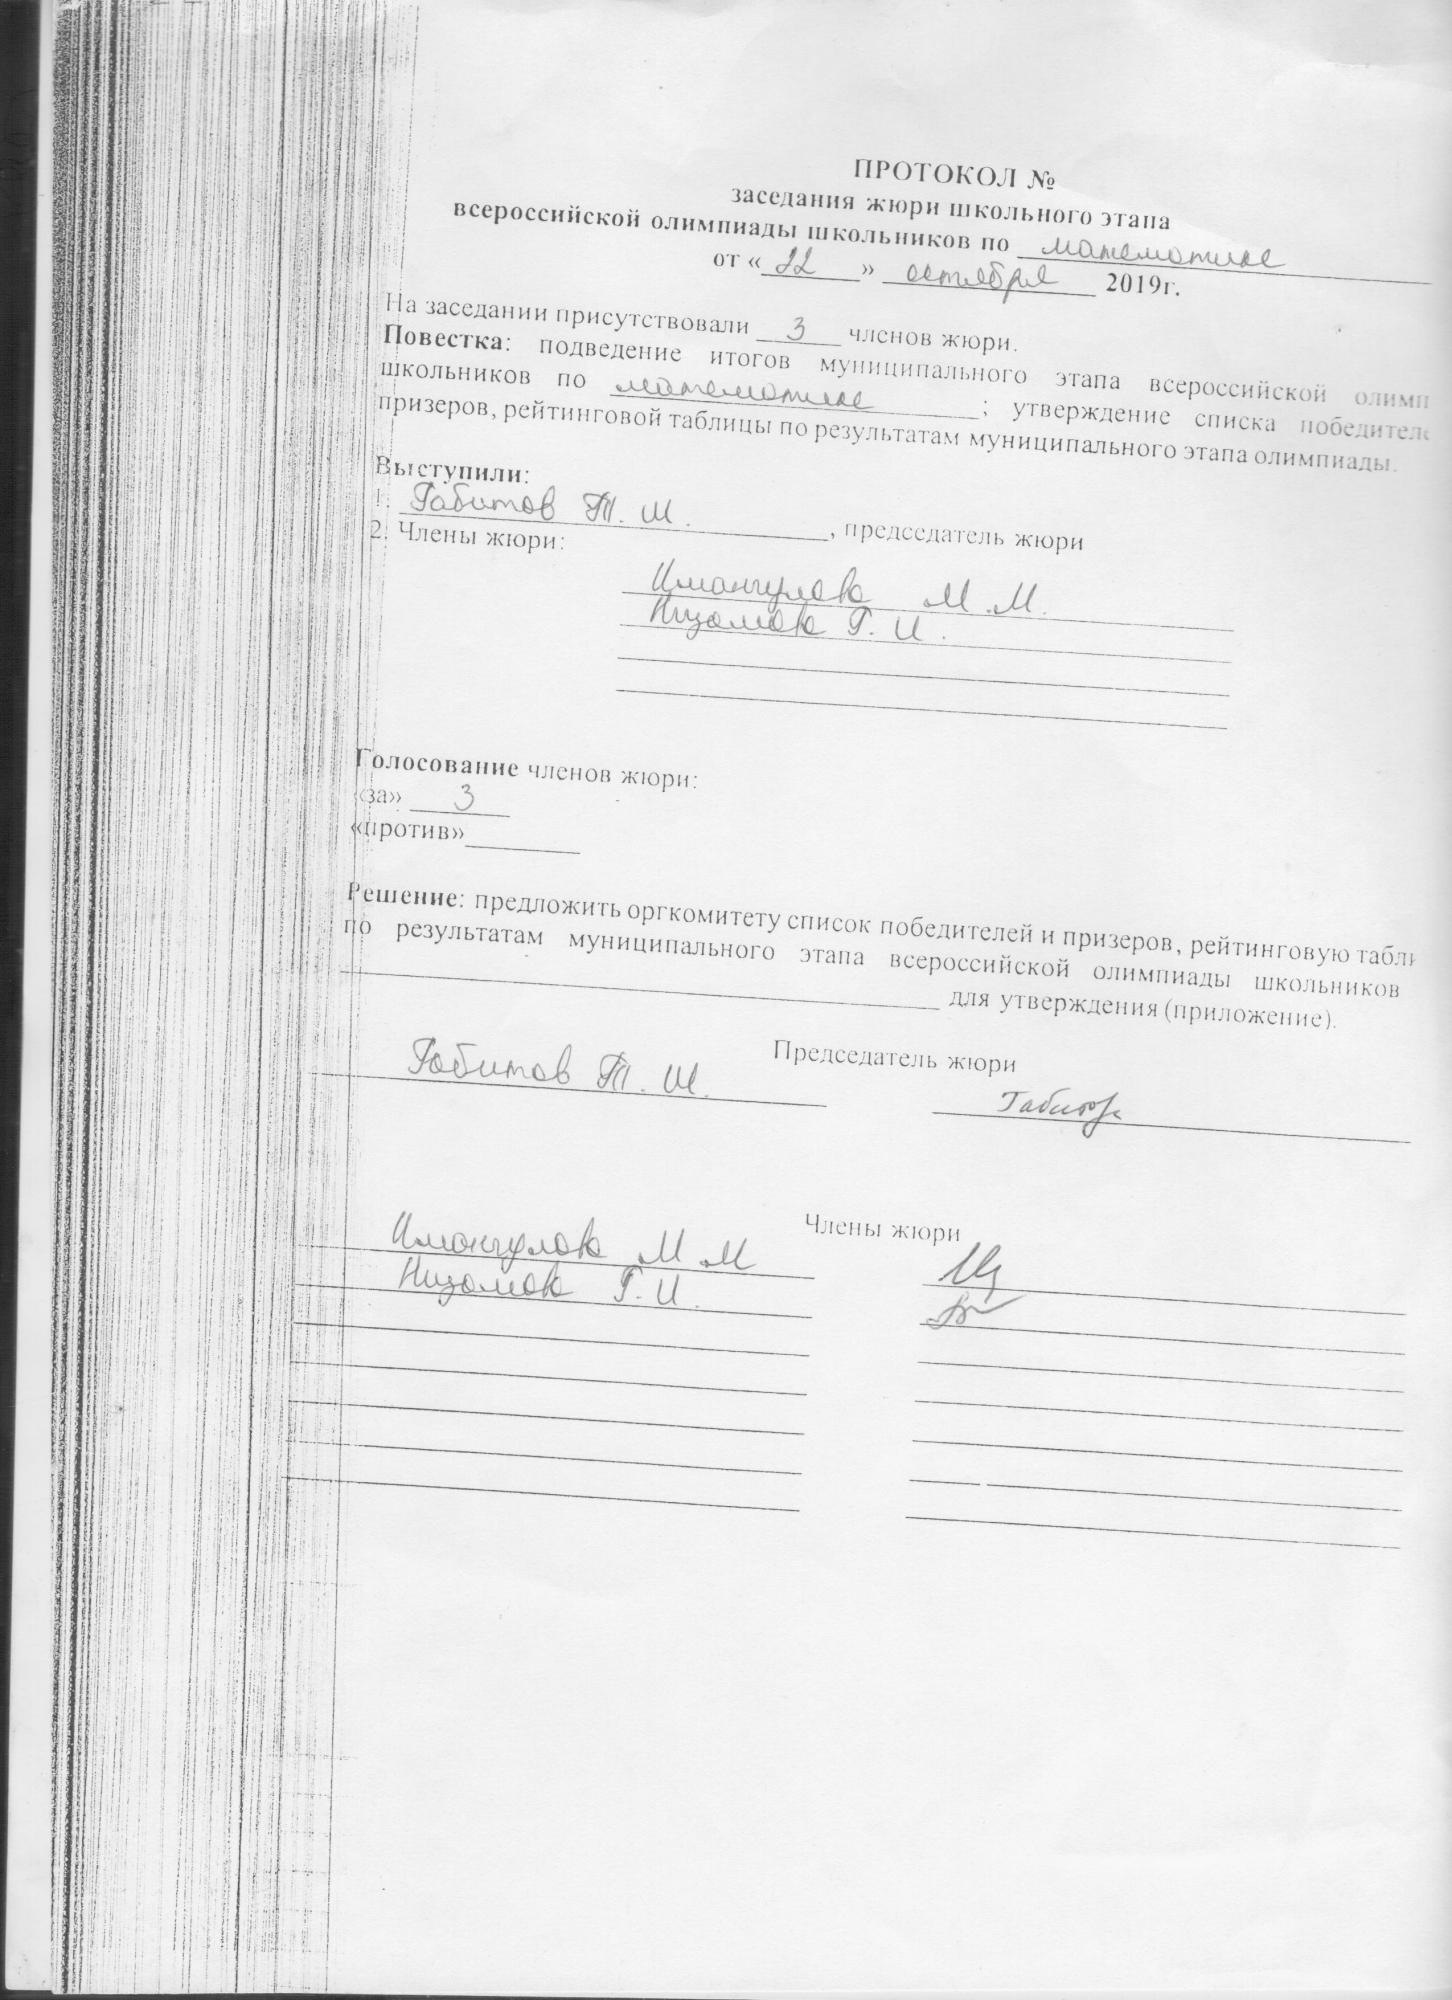 ПРОТОКОЛ №
заседания жюри школьного этапа
всероссийской олимпиады школьников по математике
от «22» октября 2019г.
На заседании присутствовали 3 членов жюри.
Повестка: подведение итогов муниципального этапа всероссийской олимп
школьников по математике; утверждение списка победителе
призеров, рейтинговой таблицы по результатам муниципального этапа олимпиады.
Выступили:
1. Габитов Т. Ш., председатель жюри
2. Члены жюри:
Имангулова М. М.
Низамова Г. И.
Голосование членов жюри:
«за» 3
«против»
Решение: предложить оргкомитету список победителей и призеров, рейтинговую табли
по результатам муниципального этапа всероссийской олимпиады школьников
для утверждения (приложение).
Председатель жюри
Габитов Т. Ш. Габитов
Члены жюри
Имангулова М М
Низамова Г. И.